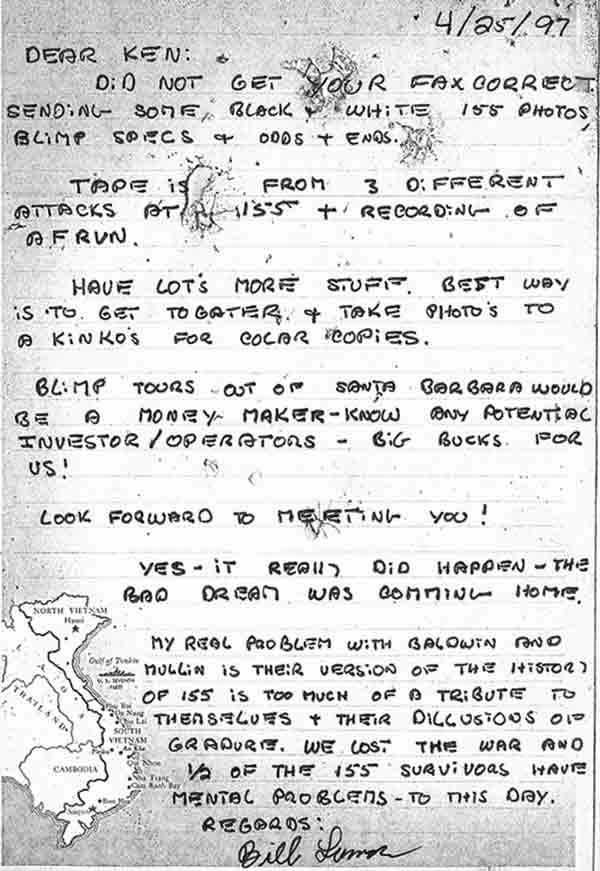 4/25/97
DEAR KEN:
DID NOT GET YOUR FAX CORRECT.
SENDING SOME, BLACK & WHITE 155 PHOTOS,
BLIMP SPECS & ODDS + ENDS.
TAPE IS FROM 3 DIFFERENT
ATTACKS AT 155 + RECORDING OF
A F RUN.
HAVE LOT'S MORE STUFF. BEST WAY
IS TO GET TOGATER, & TAKE PHOTO'S TO
A KINKO'S FOR COLAR COPIES.
BLIMP TOURS OUT OF SANTA BARBARA WOULD
BE A MONEY MAKER-KNOW ANY POTENTIAL
INVESTOR/OPERATORS - BIG BUCKS FOR
US!
LOOK FORWARD TO MEETING YOU!
YES - IT REALLY DID HAPPEN - THE
BAD DREAM WAS COMMING HOME.
MY REAL PROBLEM WITH BALDWIN AND
MULLIN IS THEIR VERSION OF THE HISTORY
OF 155 IS TOO MUCH OF A TRIBUTE TO
THEMSELVES + THEIR DILLUSIONS OF
GRADURE. WE LOST THE WAR AND
1/2 OF THE 155 SURVIVORS HAVE
MENTAL PROBLEMS - TO THIS DAY.
REGARDS:
Bill
NORTH VIETNAM
Hanoi
Gulf of Tonkin
U. S. SEVENTH
FLEET
LAOS
THAILAND
Da Nang
Chu Lai
SOUTH
VIETNAM
An Khe
Qui Nhon
CAMBODIA
Nha Trang
Cam Ranh Bay
Saigon